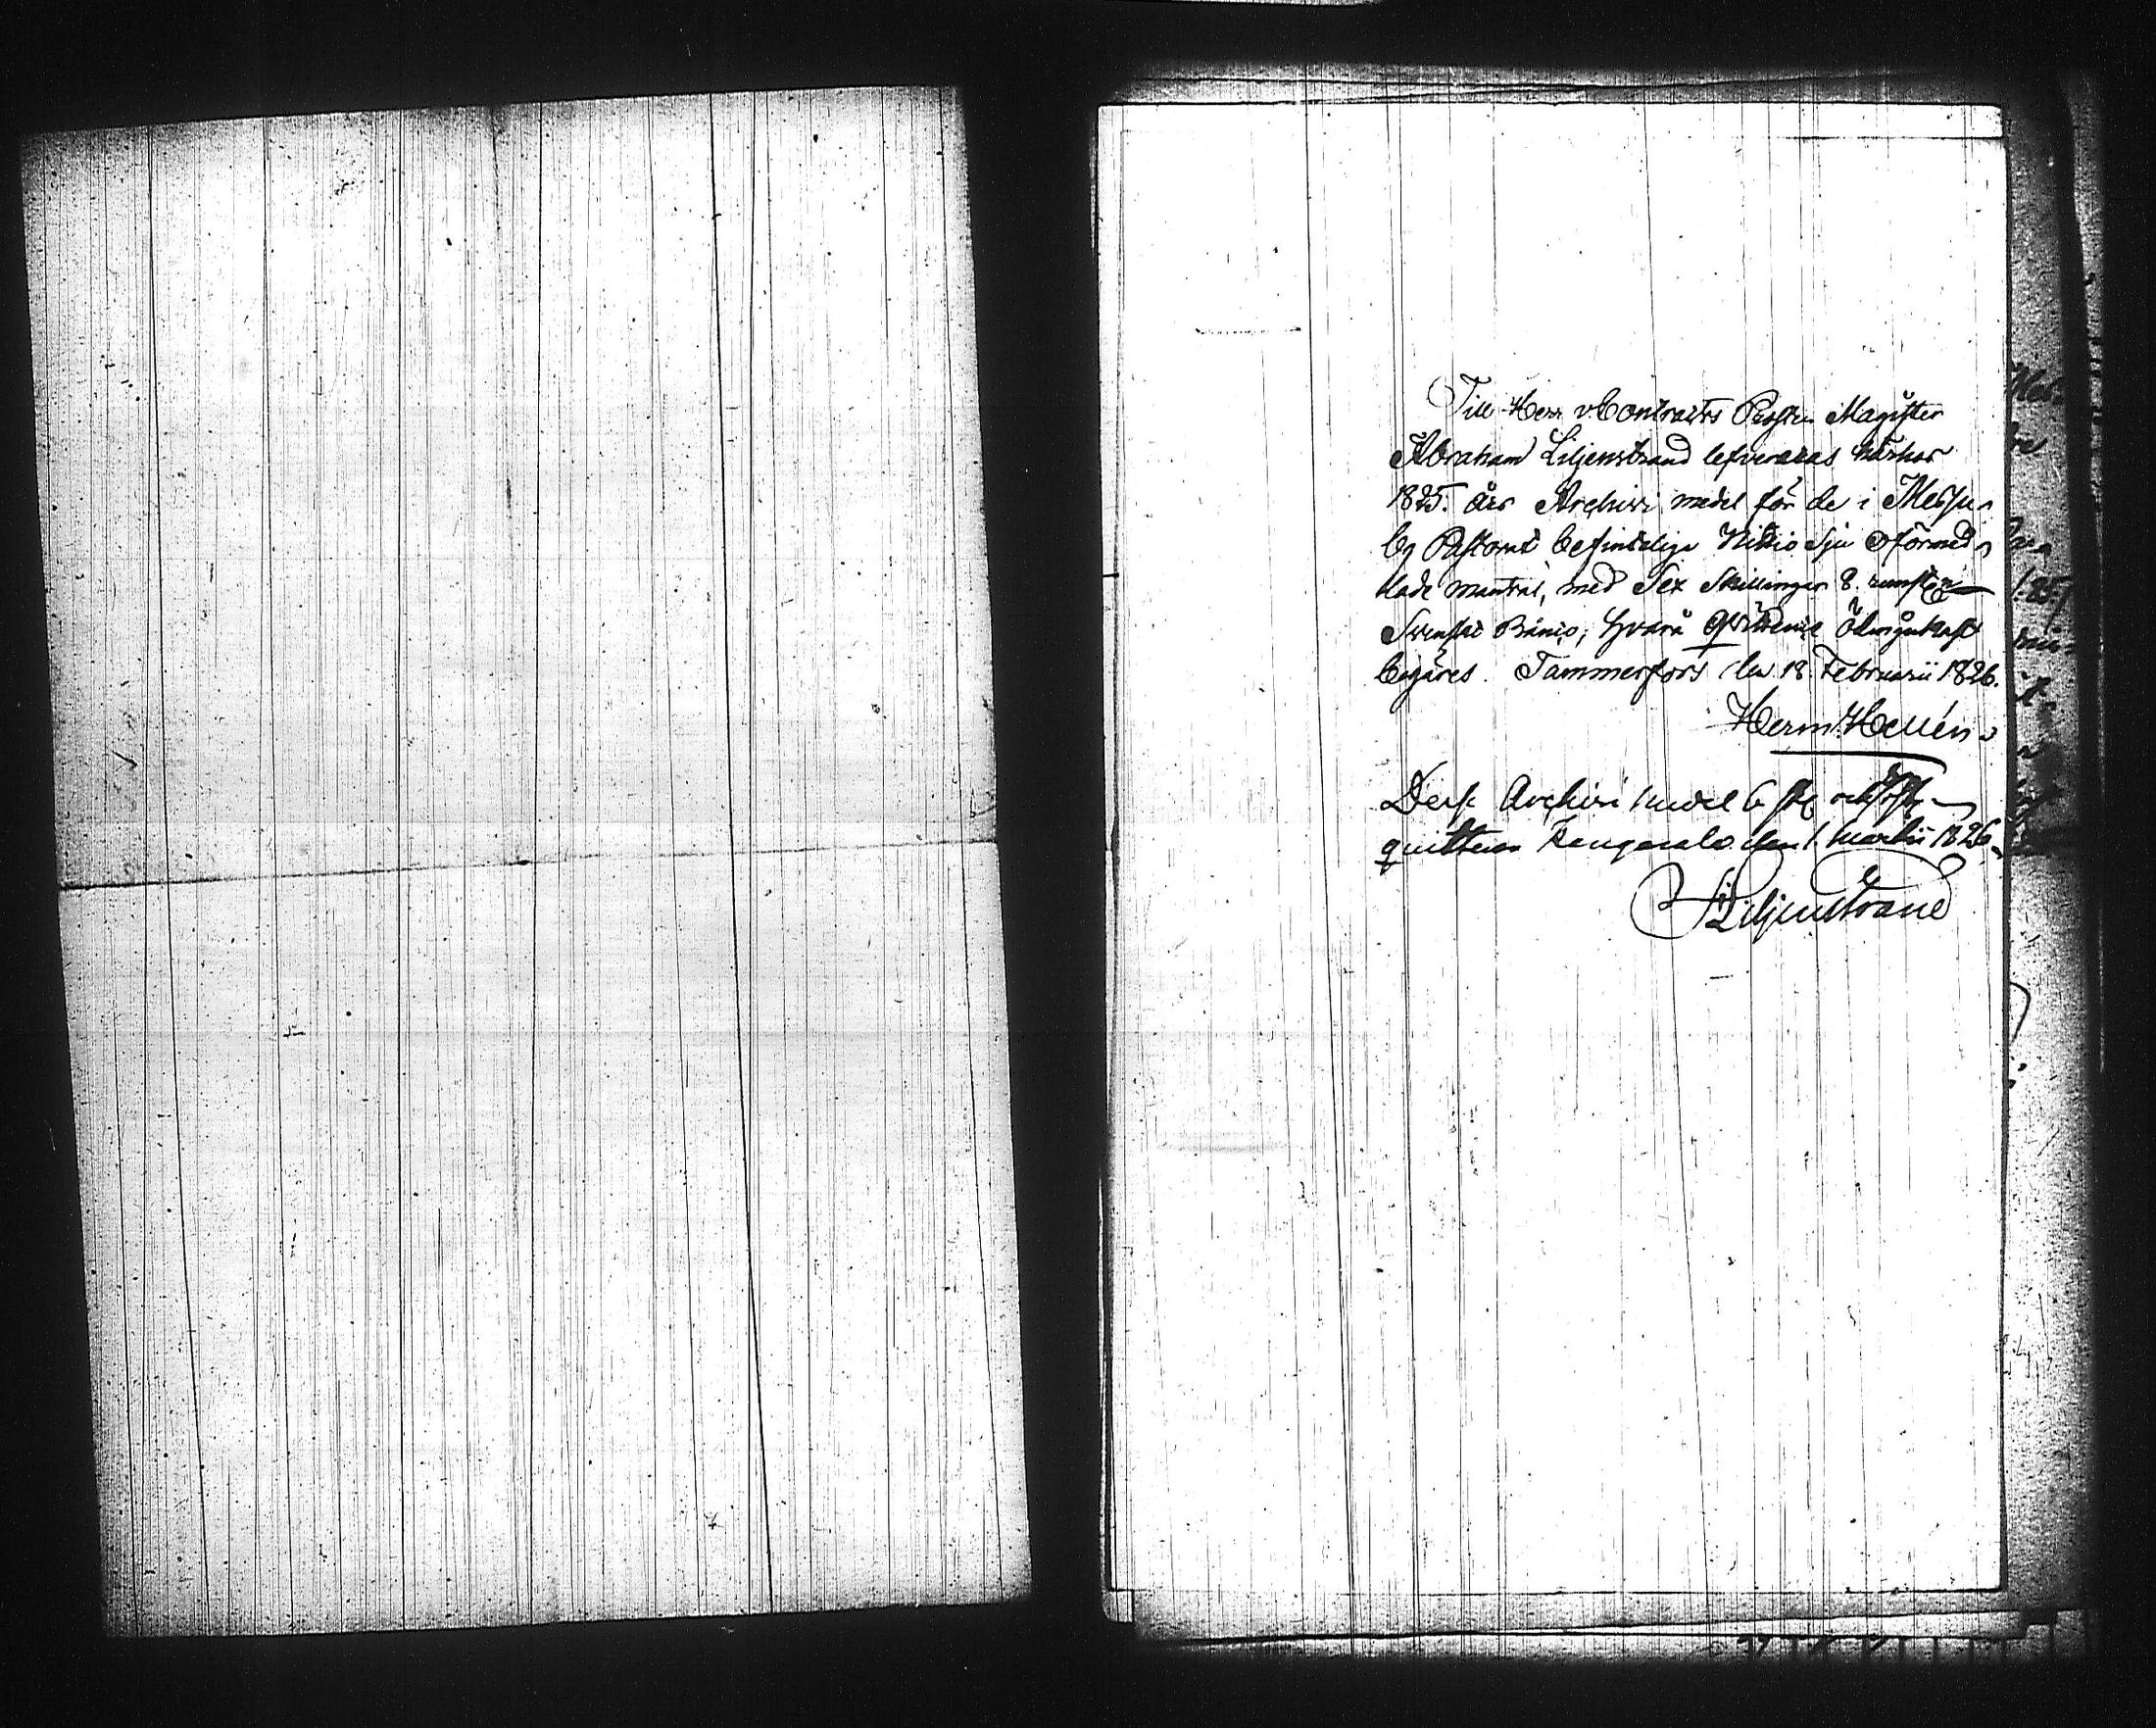 Till Herr Contracts Pasten Magister
Abraham Liljenstrand lefvereras härhos
1825. års Archivi medel för de i Messu-
by Pastorat befinteliga Nittio Sju oförmed-
lade mantal, med Sex Skillinger 8. runst
Svenskt Banco, hvarå qvittence ödmjukast
begäres. Tammerfors den 18. Februarii 1826.
Herm: Hellén
Dess Archivi medel 6 sk och
quitteras Kangasala den 1. Martii 1826
Liljenstrand